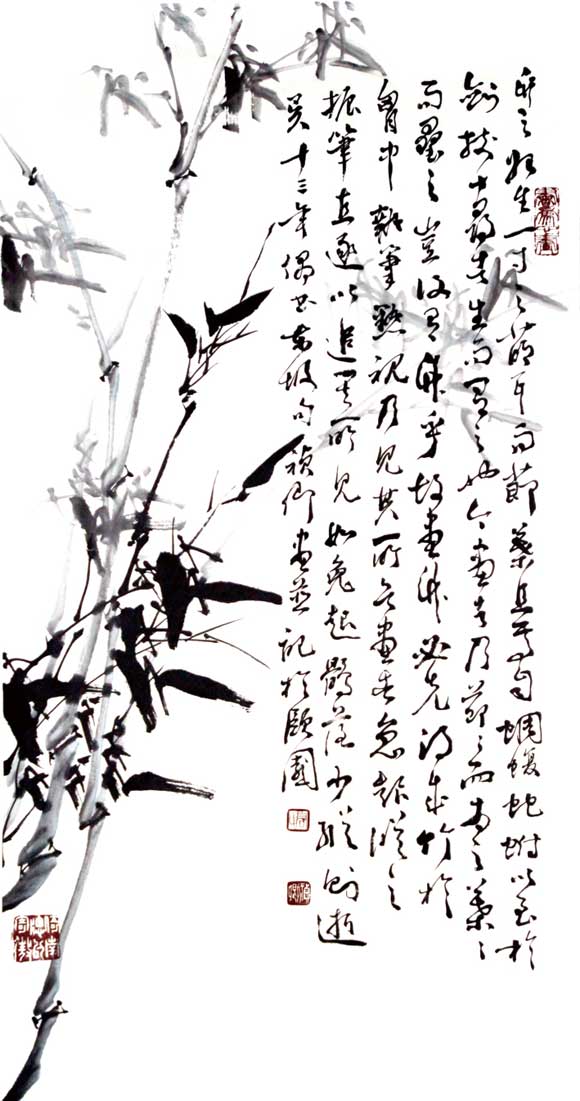 竹之始生一寸之萌耳而節葉具焉自蜩蝮蛇蚹以至於
劍拔十尋者生而有之也今畫者乃節々而為之葉々
而累之豈復有竹乎故畫竹必先得成竹於
胷中執筆熟視乃見其所欲畫者急起從之
振筆直遂以追其所見如兔起鶻落少縱則逝
矣十三年偶書東坡句禎卿畫並記於頤園